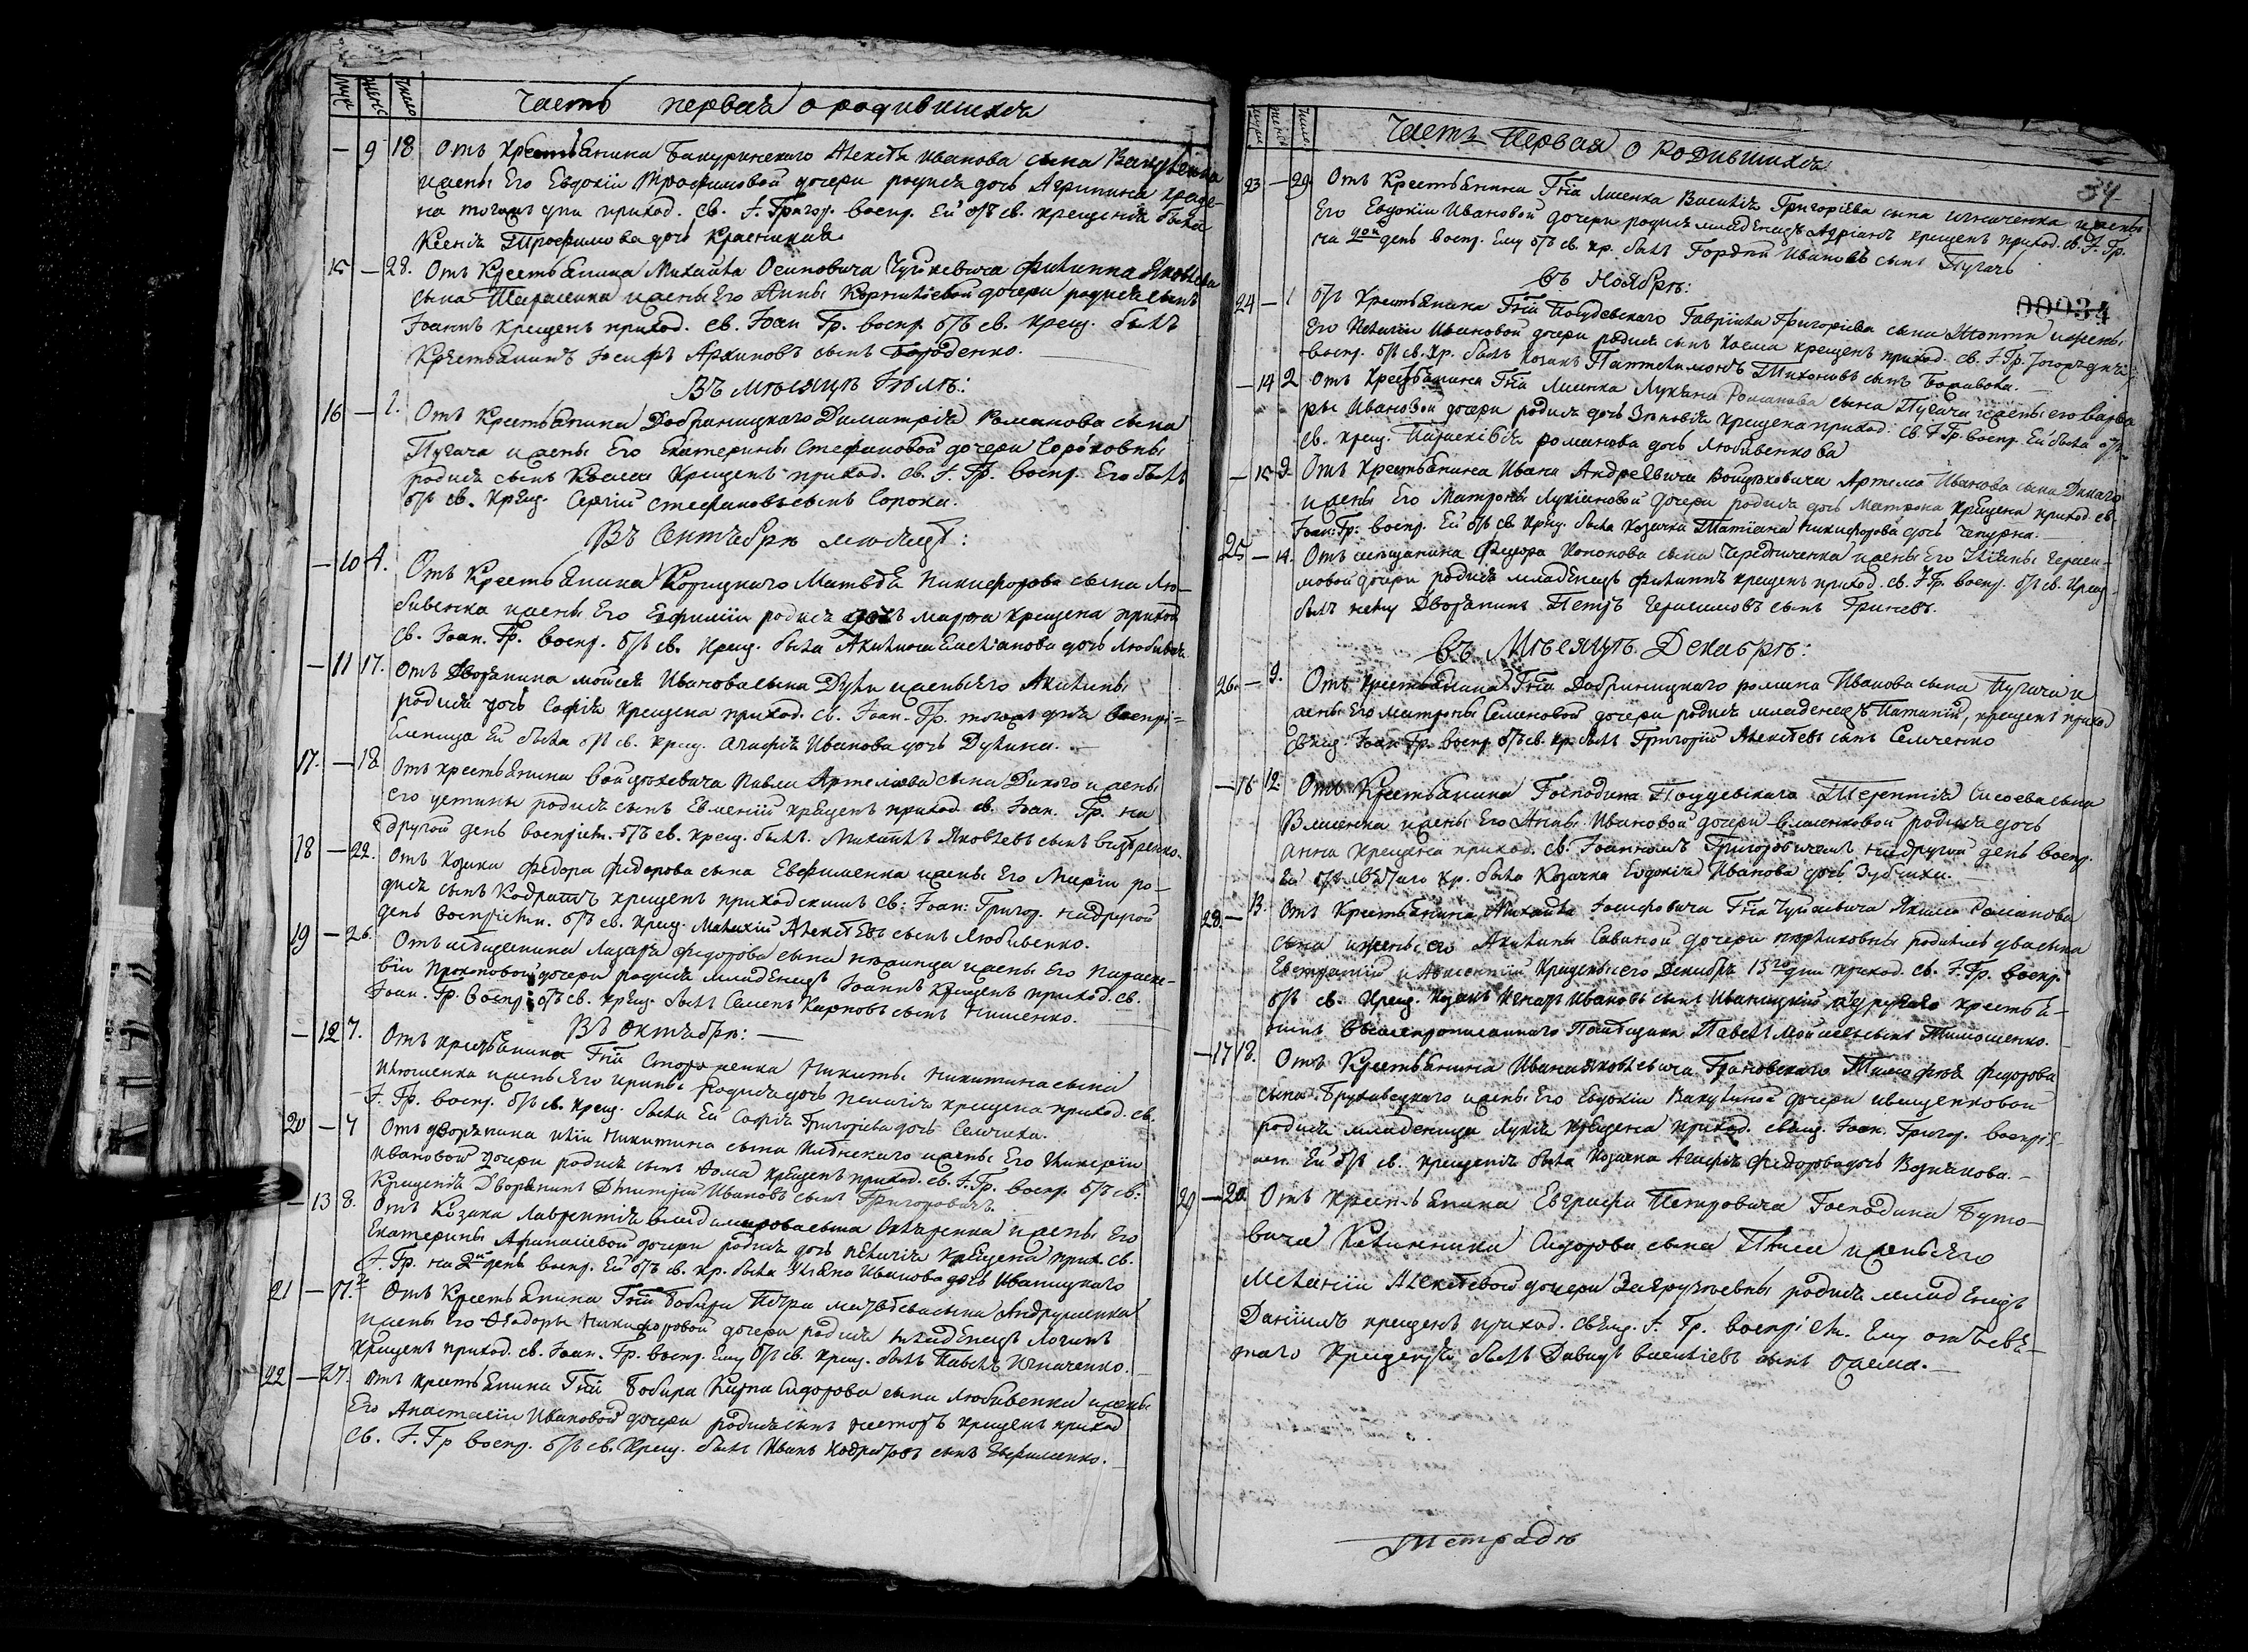 Муж. Жен. Число
Часть первая о родившихся
— 9 18 Отъ крестьянина Бакуринскаго Алексѣя Иванова сына
и жены Его Евдокіи Трофимовой дочери родися дочь Агрипина креще-
на тогожъ дни приход. св. І. Григор. воспр. Ей отъ св. крещенія была
Ксенія Трофимова дочь
15 — 28. Отъ Крестьянина Михайла Осиповича Чуйкевича Филиппа Яковлева
сына и жены Его Анны Корниліевой дочери родися сынъ
Іоаннъ крещенъ приход. св. Іоан Гр. воспр. отъ св. крещ. былъ
Крестьянинъ Іосифъ Архиповъ сынъ Бороденко.
Въ мѣсяцѣ Іюлѣ:
16 — 1. Отъ Крестьянина Добриницкаго Димитрія Романова сына
Пугача и жены Его Екатерины Стефановой дочери Сороковны
родися сынъ Косма крещенъ приход. св. І. Гр. воспр. Его былъ
отъ св. крещ. Сергій Стефановъ сынъ Сорока.
Въ Сентябрѣ мѣсяцѣ:
— 10 4. Отъ Крестьянина Матвѣя Никифорова сына Лю-
бивенка и жены Его Евфиміи родися дочь Марѳа крещена приход
св. Іоан. Гр. воспр. отъ св. крещ. была Акилина дочь
— 11 17. Отъ Дворянина Мойсея Иванова сына и жены Его Акилины
родися дочь Софія крещена приход. св. Іоан. Гр. тогожъ дня воспрі-
емница Ей была отъ св. крещ. Агафія Иванова дочь
17. — 18. Отъ крестьянина Войцеховича Павла Артемова сына Дикого и жены
его Устины родися сынъ Евменій крещенъ приход. св. Іоан. Гр. на
другой день воспріем. отъ св. крещ. былъ. Михаилъ Яковлевъ сынъ
18 — 22. Отъ Козака Федора Федорова сына Евфименка и жены Его Маріи ро-
дися сынъ Кодратъ крещенъ приходскимъ св: Іоан: Григор. на другой
день воспріем. отъ св. крещ. Алексѣевъ сынъ Любивенко.
19 — 26. Отъ мѣщанина Лазаря Федорова сына и жены Его Параске-
віи Прокоповой дочери родися младенецъ Іоаннъ крещенъ приход. св.
Іоан. Гр. воспр. отъ св. крещ. былъ Семенъ Карповъ сынъ
Въ Октябрѣ: —
— 12 7. Отъ крестьянина Гна Никиты Никитина сына
и жены Его Ирины родися дочь Пелагія крещена приход. св.
І. Гр. воспр. отъ св. крещ. была Ей Софія Григоріева дочь
20 — 7 Отъ дворянина Иліи Никитина сына и жены Его Гликеріи
Ивановой дочери родися сынъ Ѳома крещенъ приход. св. І. Гр. воспр. отъ св:
крещенія Дворянинъ Дмитрій Ивановъ сынъ Григоровичъ.
— 13 8. Отъ Козака Лаврентія Владимирова сына и жены Его
Екатерины Афанасіевой дочери родися дочь Пелагія крещена прих. св.
І. Гр. на 2й день воспр. Ей отъ св. кр. была Уліяна Иванова дочь Иваницкаго
21 — 17. Отъ Крестьянина Гна Бобыря Петра Матвѣева сына Андрушенка
и жены Его Ѳеодоры Никифоровой дочери родися младенецъ Логинъ
крещенъ приход. св. Іоан. Гр. воспр. Ему отъ св. крещ. былъ Павелъ Игначенко.
22 — 27. Отъ крестьянина Гна Бобыря Карпа Сидорова сына Любивенка и жены
Его Анастасіи Ивановой дочери родися сынъ Несторъ крещенъ приход
св. І. Гр воспр. отъ св. крещ. былъ Иванъ Кодратовъ сынъ Евфименко.
Число
Часть Первая о Родившихся
34
23 — 29. Отъ Крестьянина Гна Лисенка Василія Григоріева сына Игначенка и жены
Его Евдокіи Ивановой дочери родися младенецъ Адріанъ крещенъ приход. св. І. Гр.
на день воспр. Ему отъ св. кр. былъ Гордѣй Ивановъ сынъ Пугачъ
Въ Ноябрѣ:
00034
24 — 1 Отъ Крестьянина Гна Гавріила Григоріева сына и жены
Его Пелагіи Ивановой дочери родися сынъ Косма крещенъ приход. св. І. Гр.
воспр. отъ св. кр. былъ Козакъ Пантелимонъ Тихоновъ сынъ
— 14 2 Отъ Крестьянина Гна Лисенка Лукіяна Романова сына Пугача и жены его Варва
ры Ивановой дочери родися дочь Зѣновія крещена приход. св. І Гр. воспр. Ей была отъ
св. крещ. Параскевія Романова дочь Любивенкова
— 15 9. Отъ Крестьянина Ивана Андреевича Войцеховича Артема Иванова сына Дикаго
и жены Его Матроны Лукіановой дочери родися дочь Матрона крещена приход. св
Іоан: Гр: воспр. Ей отъ св. крещ. была Козачка Татіана Никифорова дочь Чепурна.
25 — 14. Отъ мѣщанина Федора Кононова сына и жены Его Уліяны Гераси-
мовой дочери родися младенецъ Филиппъ крещенъ приход. св. І Гр. воспр. отъ св. крещ
былъ нему Дворянинъ Петръ Герасимовъ сынъ Гриневъ.
Въ Мѣсяцѣ Декабрѣ:
26. — 9. Отъ крестьянина Гна Добриницкаго Романа Иванова сына Пугача и
жены Его Матроны Семеновой дочери родися младенецъ Потапій, крещенъ приход
Свящ. Іоан Гр. воспр. отъ св. кр. былъ Григорій Алексѣевъ сынъ Семченко
— 16 12 Отъ Крестьянина Господина Терентія Сисоева сына
Власенка и жены Его Анны Ивановой дочери Власенковой родися дочь
Анна крещена приход. св. Іоанномъ Григоровичемъ на другой день воспр.
Ей отъ святаго кр. была Козачка Евдокія Иванова дочь
28. — 13. Отъ Крестьянина Михайла Іосифовича Гна Чуйкевича Якима Романова
сына и жены его Акилины Савиной дочери родились два сына
Евстратій и Авксентій крещены сего Декабря 13го дни приход. св. І. Гр. воспр.
отъ св. крещ. Козакъ Игнатъ Ивановъ сынъ Иваницкій а другаго крестья-
нинъ вышепрописаннаго Помѣщика Павелъ Мойсеевъ сынъ Тимошенко.
— 17 18. Отъ Крестьянина Ивана Яковлевича Грановскаго Тимофея Федорова
сына и жены Его Евдокіи Вакулиной дочери Иващенковой
родися младеница Лукія крещена приход. свящ. Іоан. Григор. воспріе-
мн. Ей отъ св. крещенія была Козачка Агафія Федорова дочь Вознякова. —
29 — 20. Отъ Крестьянина Евграфа Петровича Господина Буто-
вича Калинника Сидорова сына и жены Его
Меланіи Алексѣевой дочери родися младенецъ
Даніилъ крещенъ приход. свящ. І. Гр. воспріем. Ему отъ свя-
таго крещенія былъ Давидъ Василіевъ сынъ
Тетрадь